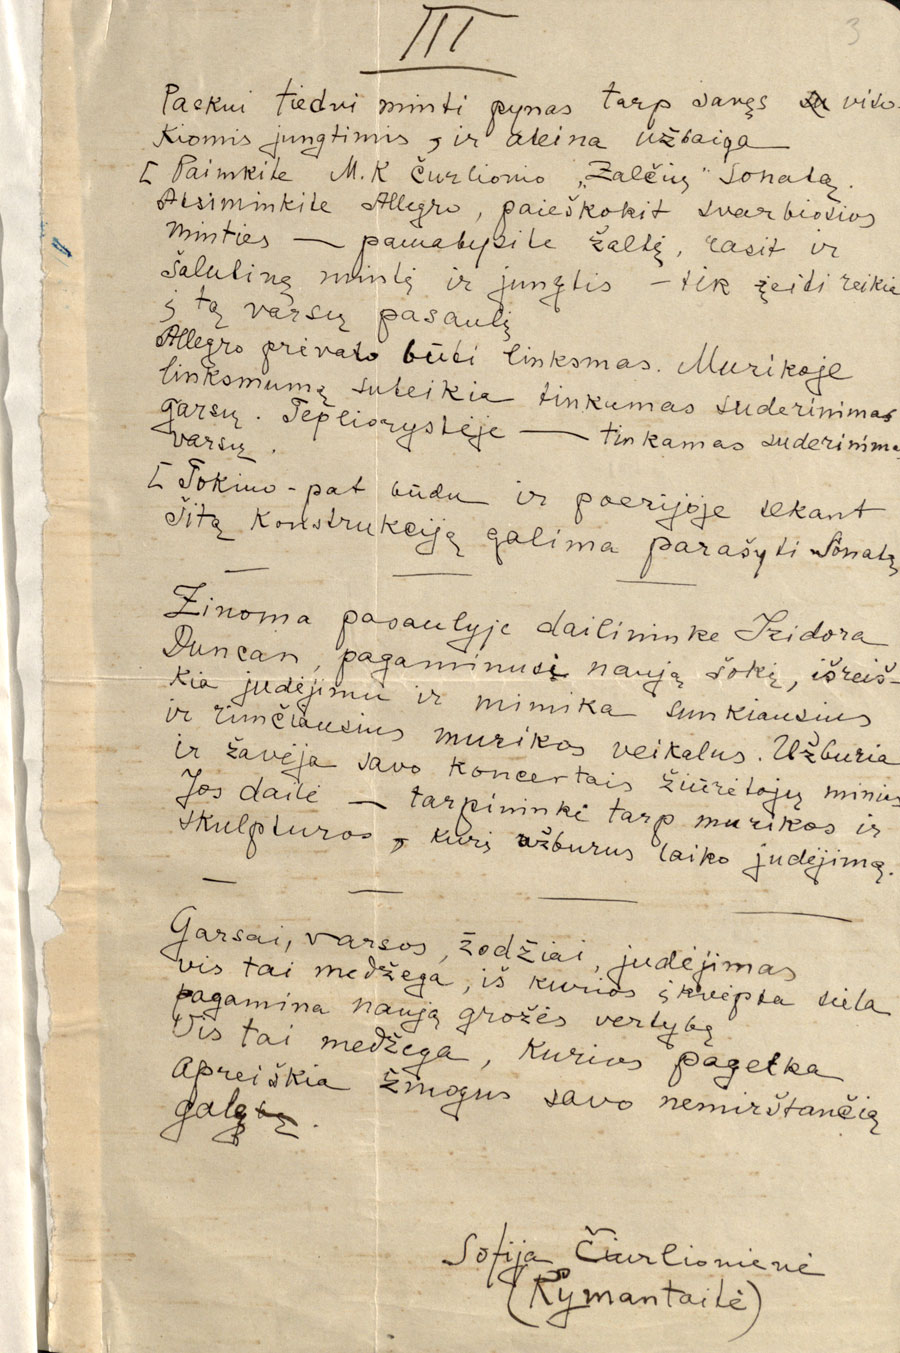 III
3
Paskui tiedvi minti pynas tarp savęs su viso-
kiomis jungtimis, ir ateina užbaiga
[ Paimkite M.K Čurlionio „Žalčių" Sonatą.
Atsiminkite Allegro, paieškokit svarbiosios
minties — pamatysite žaltį, rasit ir
šalutinę mintį ir jungtis — tik įeiti reikia
į tą varsų pasaulį
Allegro privalo būti linksmas. Muzikoje
linksmumą suteikia tinkumas suderinimas
garsų. Tepliorystėje — tinkamas suderinima
varsų.
[ Tokiuo-pat būdu ir poezijoje sekant
šitą konstrukciją galima parašyti Sonatą
Žinoma pasaulyje dailininkė Izidora
Duncan, pagaminusi naują šokį, išreiš-
kia judėjimu ir mimika sunkiausius
ir rimčiausius muzikos veikalus. Užburia
ir žavėja savo koncertais žiūrėtojų minias
Jos dailė — tarpininkė tarp muzikos ir
skulpturos, kuri užburus laiko judėjimą.
Garsai, varsos, žodžiai, judėjimas
vis tai medžega, iš kurios įkvėpta siela
pagamina naują grožės vertybę
Vis tai medžega, kurios pagelka
apreiškia žmogus savo nemirštančią
galybę.
Sofija Čiurlionienė
(Kymantaitė)